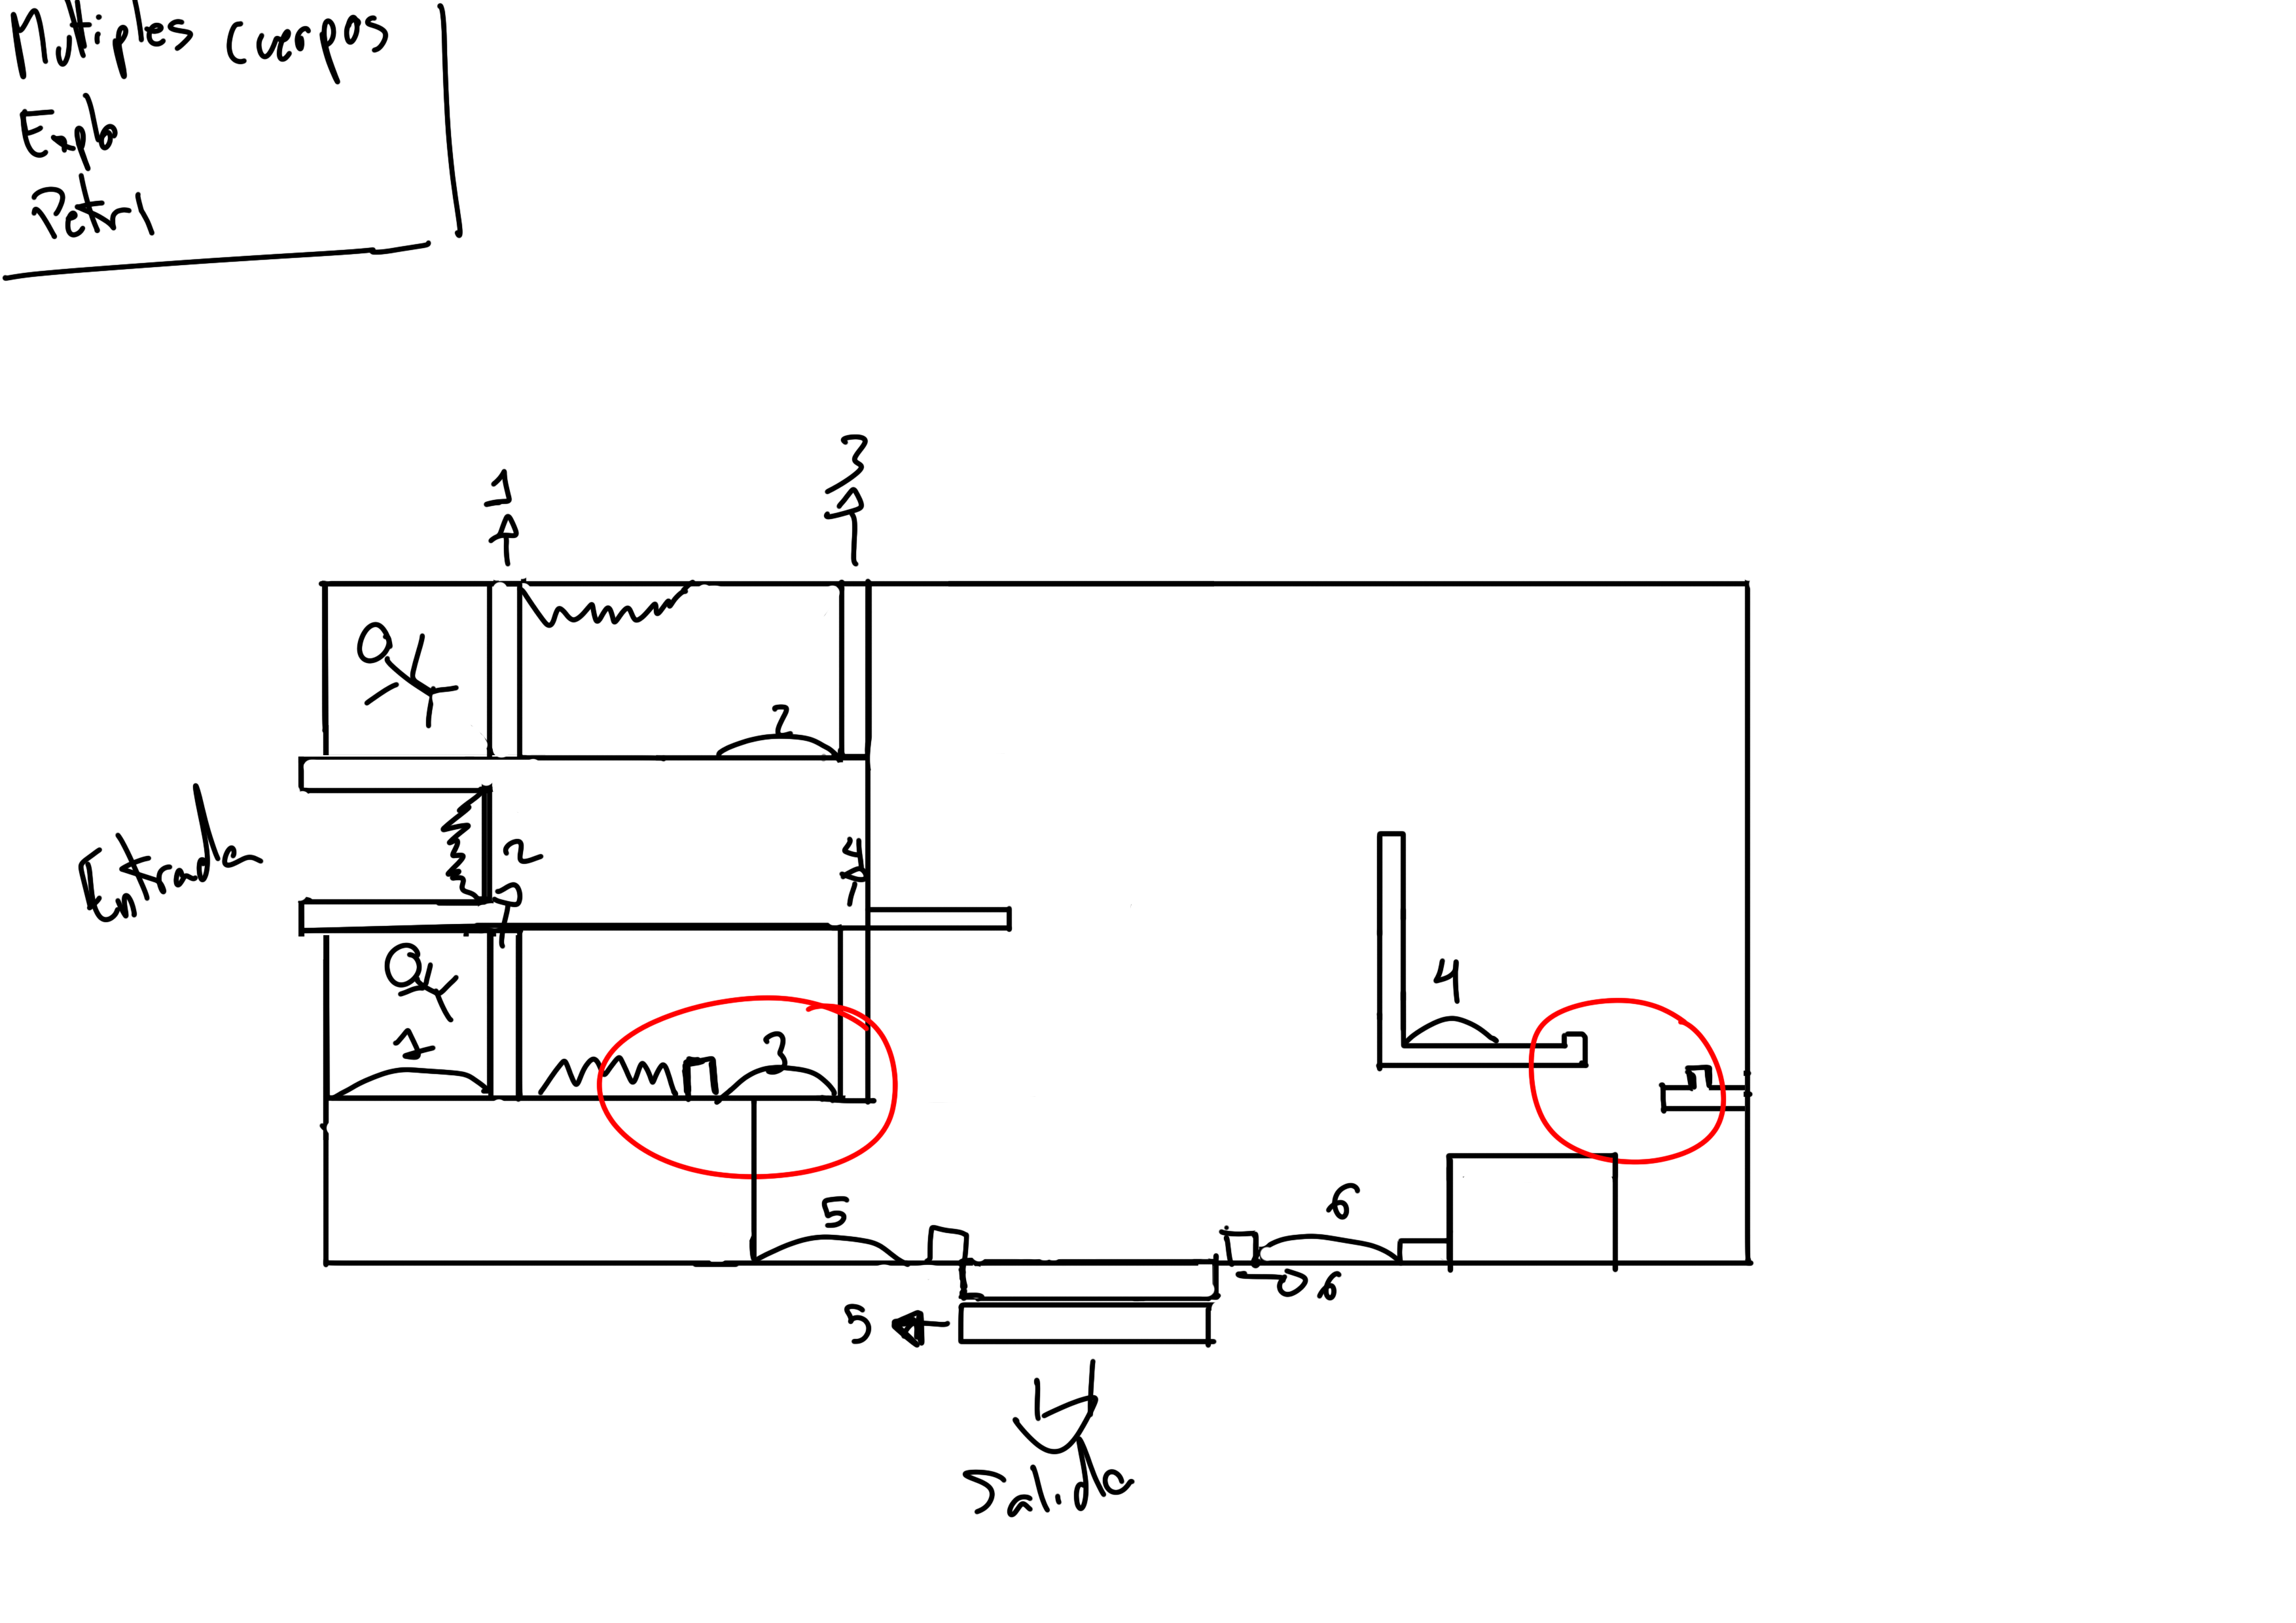 Multiples cuerpos
Explo
Petri
1
3
2
Entrada
2
4
4
1
3
5
6
5
6
Salida